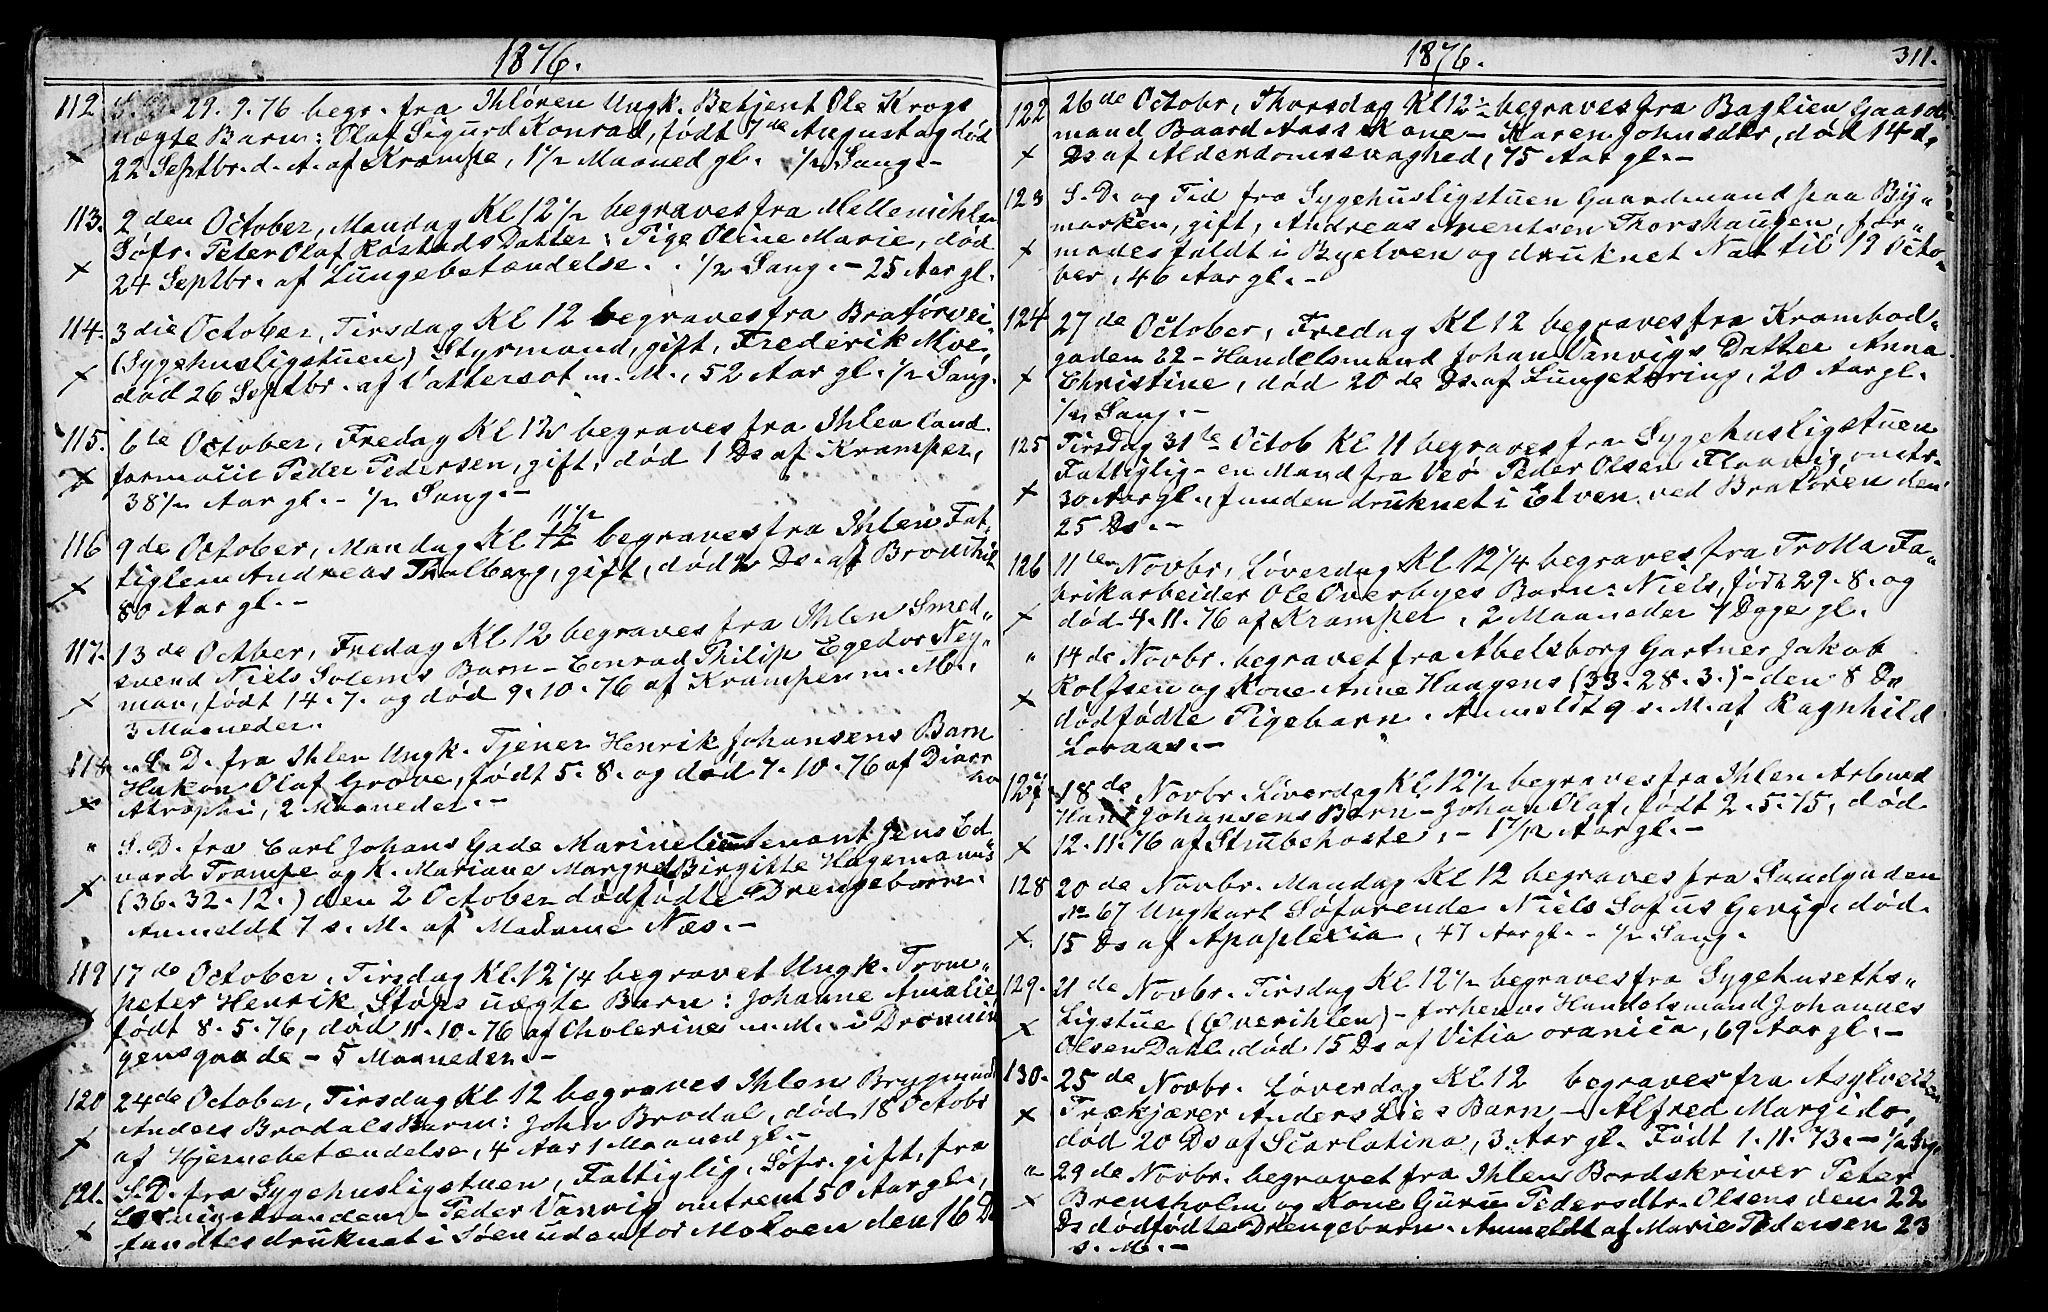 1876.
112. S. D. 29. 9. 76 begr. fra Ihlören Ungk. Betjent Ole Krogs
uægte Barn: Olaf Sigurd Konrad, født 7de August og død
22 Septbr. d. A. af Krampe, 1 1/2 Maaned gl. 1/2 Sang.-
113. 2den October, Mandag Kl 12 1/2 begraves fra Mellemihlen
Søfr. Peter Olaf Røstads Datter: Pige Oline Marie, død
24 Septbr. af Lungebetændelse. 1/2 Sang.- 25 Aar gl.
114. 3die October, Tirsdag Kl 12 begraves fra Bratørvei-
(Sygehusligstuen) Styrmand, gift, Frederik Moe,
død 26 Septbr. af Vattersot m. M., 52 Aar gl. 1/2 Sang.
115. 6te October, Fredag Kl 12 begraves fra Ihlen Land.
formand Peder Pedersen, gift, død 1 Ds af Kramper,
38 1/2 Aar gl.- 1/2 Sang.-
11 1/2
116 9de October, Mandag Kl 12 begraves fra Ihlen Fat-
tiglem Andreas Thalberg, gift, død 2 Ds. af Bronchit
80 Aar gl.-
117. 13de Octber, Fredag Kl 12 begraves fra Ihlen Smed-
svend Niels Solems Barn- Conrad Philip Egedor Ney-
man, født 14. 7. og død 9. 10. 76 af Krampe m. M.,
3 Maaneder.
118. S. D. fra Ihlen Ungk. Tjener Henrik Johansens Barn
Hakon Olaf Grove, født 5. 8. og død 7. 10. 76 af Diarrho
Atrophi, 2 Maaneder.-
" S. D. fra Carl Johans Gade Marinelieutenant Jens Ed-
vard Trampe og K. Mariane Margret Birgitte Hagemann's
(36. 32. 12.) den 2 October dødfødte Drengebarn.
Anmeldt 7 s. M. af Madame Næs.-
119 17de October, Tirsdag Kl. 12 1/4 begravet Ungk. Trom-
peter Henrik Støps uægte Barn: Johanne Amalie
født 8. 5. 76, død 11. 10. 76 af Cholerine m. M. i Dronnin
gensgade- 5 Maaneder.-
120 24de October, Tirsdag Kl 12 begraves Ihlen Brygmand
Anders Brodals Barn: John Brodal, død 18 Octobr
af Hjernebetændelse, 4 Aar 1 Maaned gl.-
121. S. D. fra Sygehusligstuen, Fattiglig, Søfr. gift, fra
Peder Vanvig omtrent 50 Aar gl.,
fandtes druknet i Søen udenfor Moloen den 16 Ds
1876.
311.
122 26de Octobr, Thorsdag Kl 12 1/2 begraves fra Baglien Gaard-
mand Baard Aass Kone- Karen Johnsdtr, død 14 d.
Ds af Alderdomssvaghed, 75 Aar gl.-
123 S. D. og Tid fra Sygehusligstuen Gaardmand paa By-
marken, gift, Andreas Arentsen Thorshaugen, for-
modes faldt i Byelven og druknet Nat til 19 Octo-
ber, 46 Aar gl.-
124 27de October, Fredag Kl 12 begraves fra Krambod-
gaden 22- Handelsmand Johan Vanvigs Datter Anna
Christine, død 20de Ds. af Lungetæring, 20 Aar gl.
1/2 Sang.-
125 Tirsdag 31te Octob Kl 11 begraves fra Sygehusligstuen
Fattiglig- en Mand fra Veø Peder Olsen Flaavig, omtr.
30 Aar gl., funden druknet i Elven ved Bratøren den
25 Ds.-
126 11te Novbr, Løverdag Kl 12 1/4 begraves fra Trolla Fa-
brikarbeider Ole Overbyes Barn: Niels, født 29. 8. og
død 4. 11. 76 af Kramper, 2 Maaneder 7 Dage gl.
" 14de Novbr. begravet fra Abelsborg Gartner Jakob
Rolfsen og Kone Anne Haagens (33. 28. 3.)- den 8 Ds
dødfødte Pigebarn. Anmeldt 9 s. M. af Ragnhild
Loraas.-
127 18de Novbr. Løverdag Kl. 12 1/2 begraves fra Ihlen Arbmd
Hans Johansens Barn- Johan Olaf, født 2. 5. 75, død
12. 11. 76 af Strubehoste,- 1 7/12 Aar gl.-
128 20de Novbr. Mandag Kl 12 begraves fra Sandgaden
No 67 Ungkarl Søfarende Niels Sofus Gervig, død
15 Ds af Apoplexia, 47 Aar gl.- 1/2 Sang.
129. 21de Novbr. Tirsdag Kl 12 1/2 begraves fra Sygehusets-
Ligstue (Øverihlen)- forhenv Handelsmand Johannes
Olsen Dahl, død 15 Ds af Vitia oranica, 69 Aar gl.-
130. 25de Novbr. Løverdag Kl 12 begraves fra Asylveiten
Trækjører Anders Lies Barn- Alfred Margido,
død 20 Ds af Scarlatina, 3 Aar gl. Født 1. 11. 73.- 1/2 Sg.
" 29de Novbr. begravet fra Ihlen Bordskriver Peter
Brensholm og Kone Guru Pedersdtr. Olsens den 22
Ds dødfødte Drengebarn. Anmeldt af Marie Pedersen 23
s. M.-